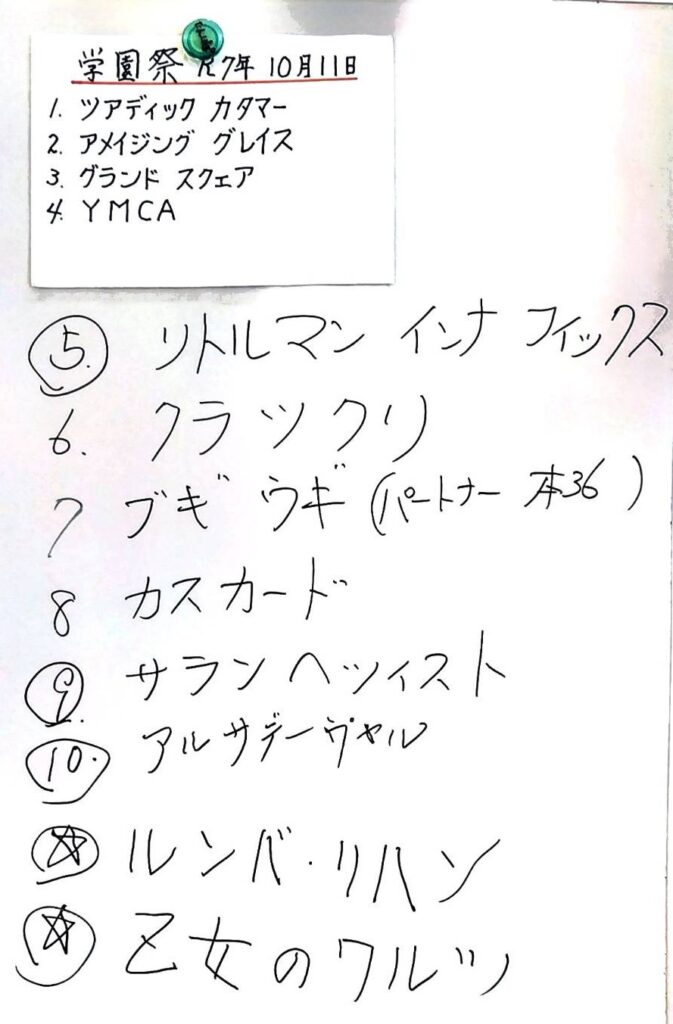 学園祭 R7年 10月11日
1. ツアディック カタマー
2. アメイジング グレイス
3. グランド スクェア
4. YMCA
5. リトルマン インナ フィックス
6. クラックリ
7 ブギ ウギ (パートナー 本36)
8 カスカード
9. サラン ヘツィスト
10. アルサデーヴャル
☆ ルンバ・リハン
☆ 乙女のワルツ